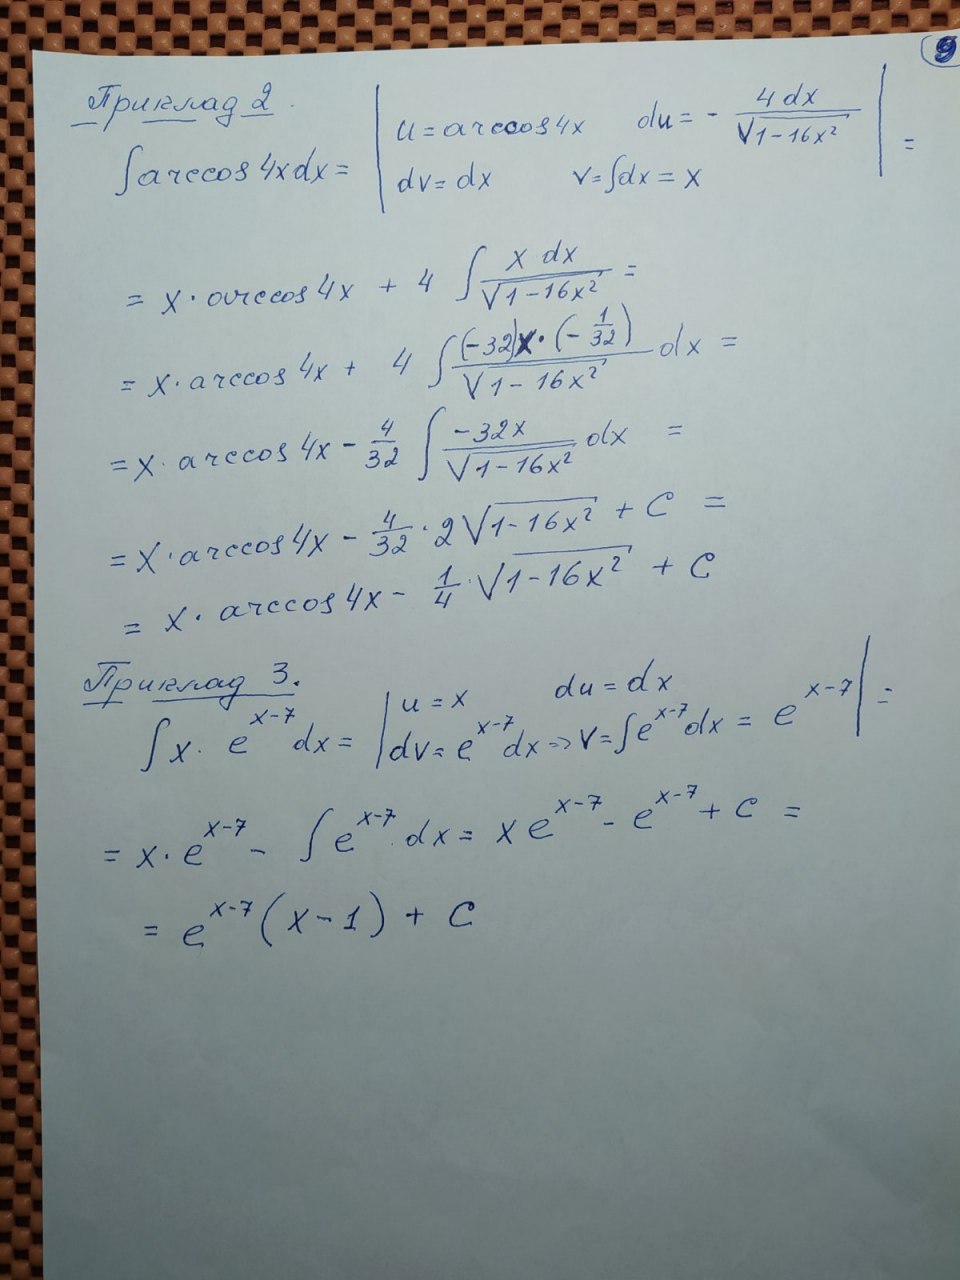 9
Приклад 2.
∫ arccos 4x dx = | u = arccos 4x du = - 4 dx / √(1-16x²) | =
| dv = dx v = ∫dx = x |
= x · arccos 4x + 4 ∫ x dx / √(1-16x²) =
= x · arccos 4x + 4 ∫ (-32)x · (-1/32) / √(1-16x²) dx =
= x · arccos 4x - 4/32 ∫ -32x / √(1-16x²) dx =
= x · arccos 4x - 4/32 · 2 √(1-16x²) + C =
= x · arccos 4x - 1/4 · √(1-16x²) + C
Приклад 3.
∫ x · e^(x-7) dx = | u = x du = dx | =
| dv = e^(x-7) dx => v = ∫ e^(x-7) dx = e^(x-7) |
= x · e^(x-7) - ∫ e^(x-7) dx = x e^(x-7) - e^(x-7) + C =
= e^(x-7) (x-1) + C